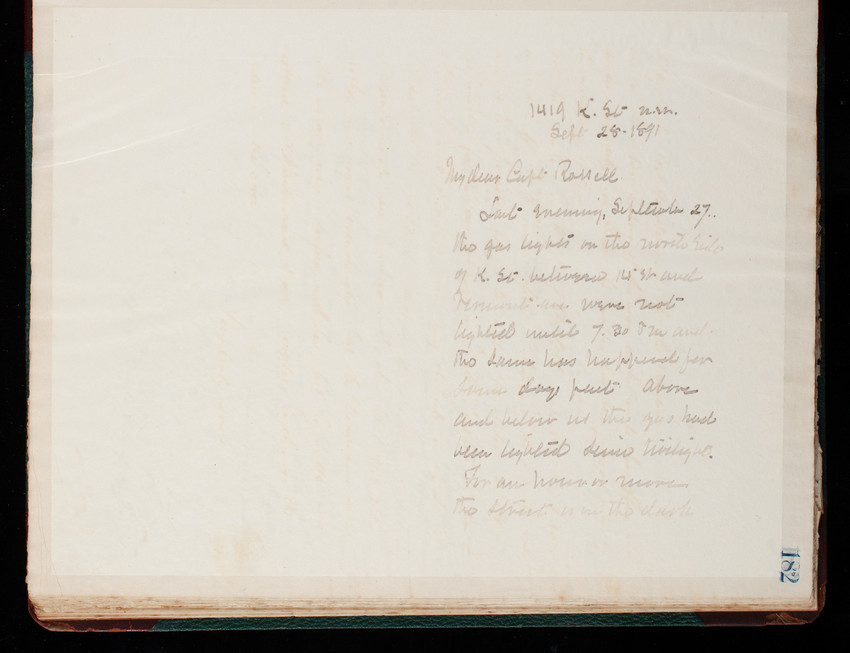 1419 K. St n.w.
Sept 28-1891
My dear Capt Rossell.
Last evening, September 27..
the gas lights on the north side
of K. St. between 14 St and
Vermont ave were not
lighted until 7.30 P m and
the same has happened for
some days past Above
and below us the gas had
been lighted since twilight.
For an hour or more
the street is in the dark
182